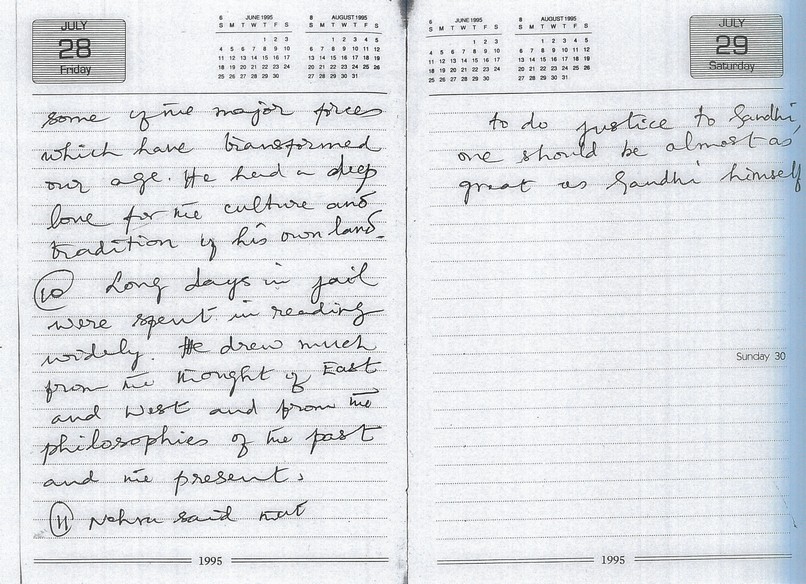 JULY
28
Friday
6 JUNE 1995
S M T W T F S
1 2 3
4 5 6 7 8 9 10
11 12 13 14 15 16 17
18 19 20 21 22 23 24
25 26 27 28 29 30
8 AUGUST 1995
S M T W T F S
1 2 3 4 5
6 7 8 9 10 11 12
13 14 15 16 17 18 19
20 21 22 23 24 25 26
27 28 29 30 31
some of the major forces
which have transformed
our age. He had a deep
love for the culture and
tradition of his own land.
10 Long days in jail
were spent in reading
widely. He drew much
from the thought of East
and West and from the
philosophies of the past
and the present.
11 Nehru said that
1995
6 JUNE 1995
S M T W T F S
1 2 3
4 5 6 7 8 9 10
11 12 13 14 15 16 17
18 19 20 21 22 23 24
25 26 27 28 29 30
8 AUGUST 1995
S M T W T F S
1 2 3 4 5
6 7 8 9 10 11 12
13 14 15 16 17 18 19
20 21 22 23 24 25 26
27 28 29 30 31
JULY
29
Saturday
to do justice to Gandhi,
one should be almost as
great as Gandhi himself
Sunday 30
1995